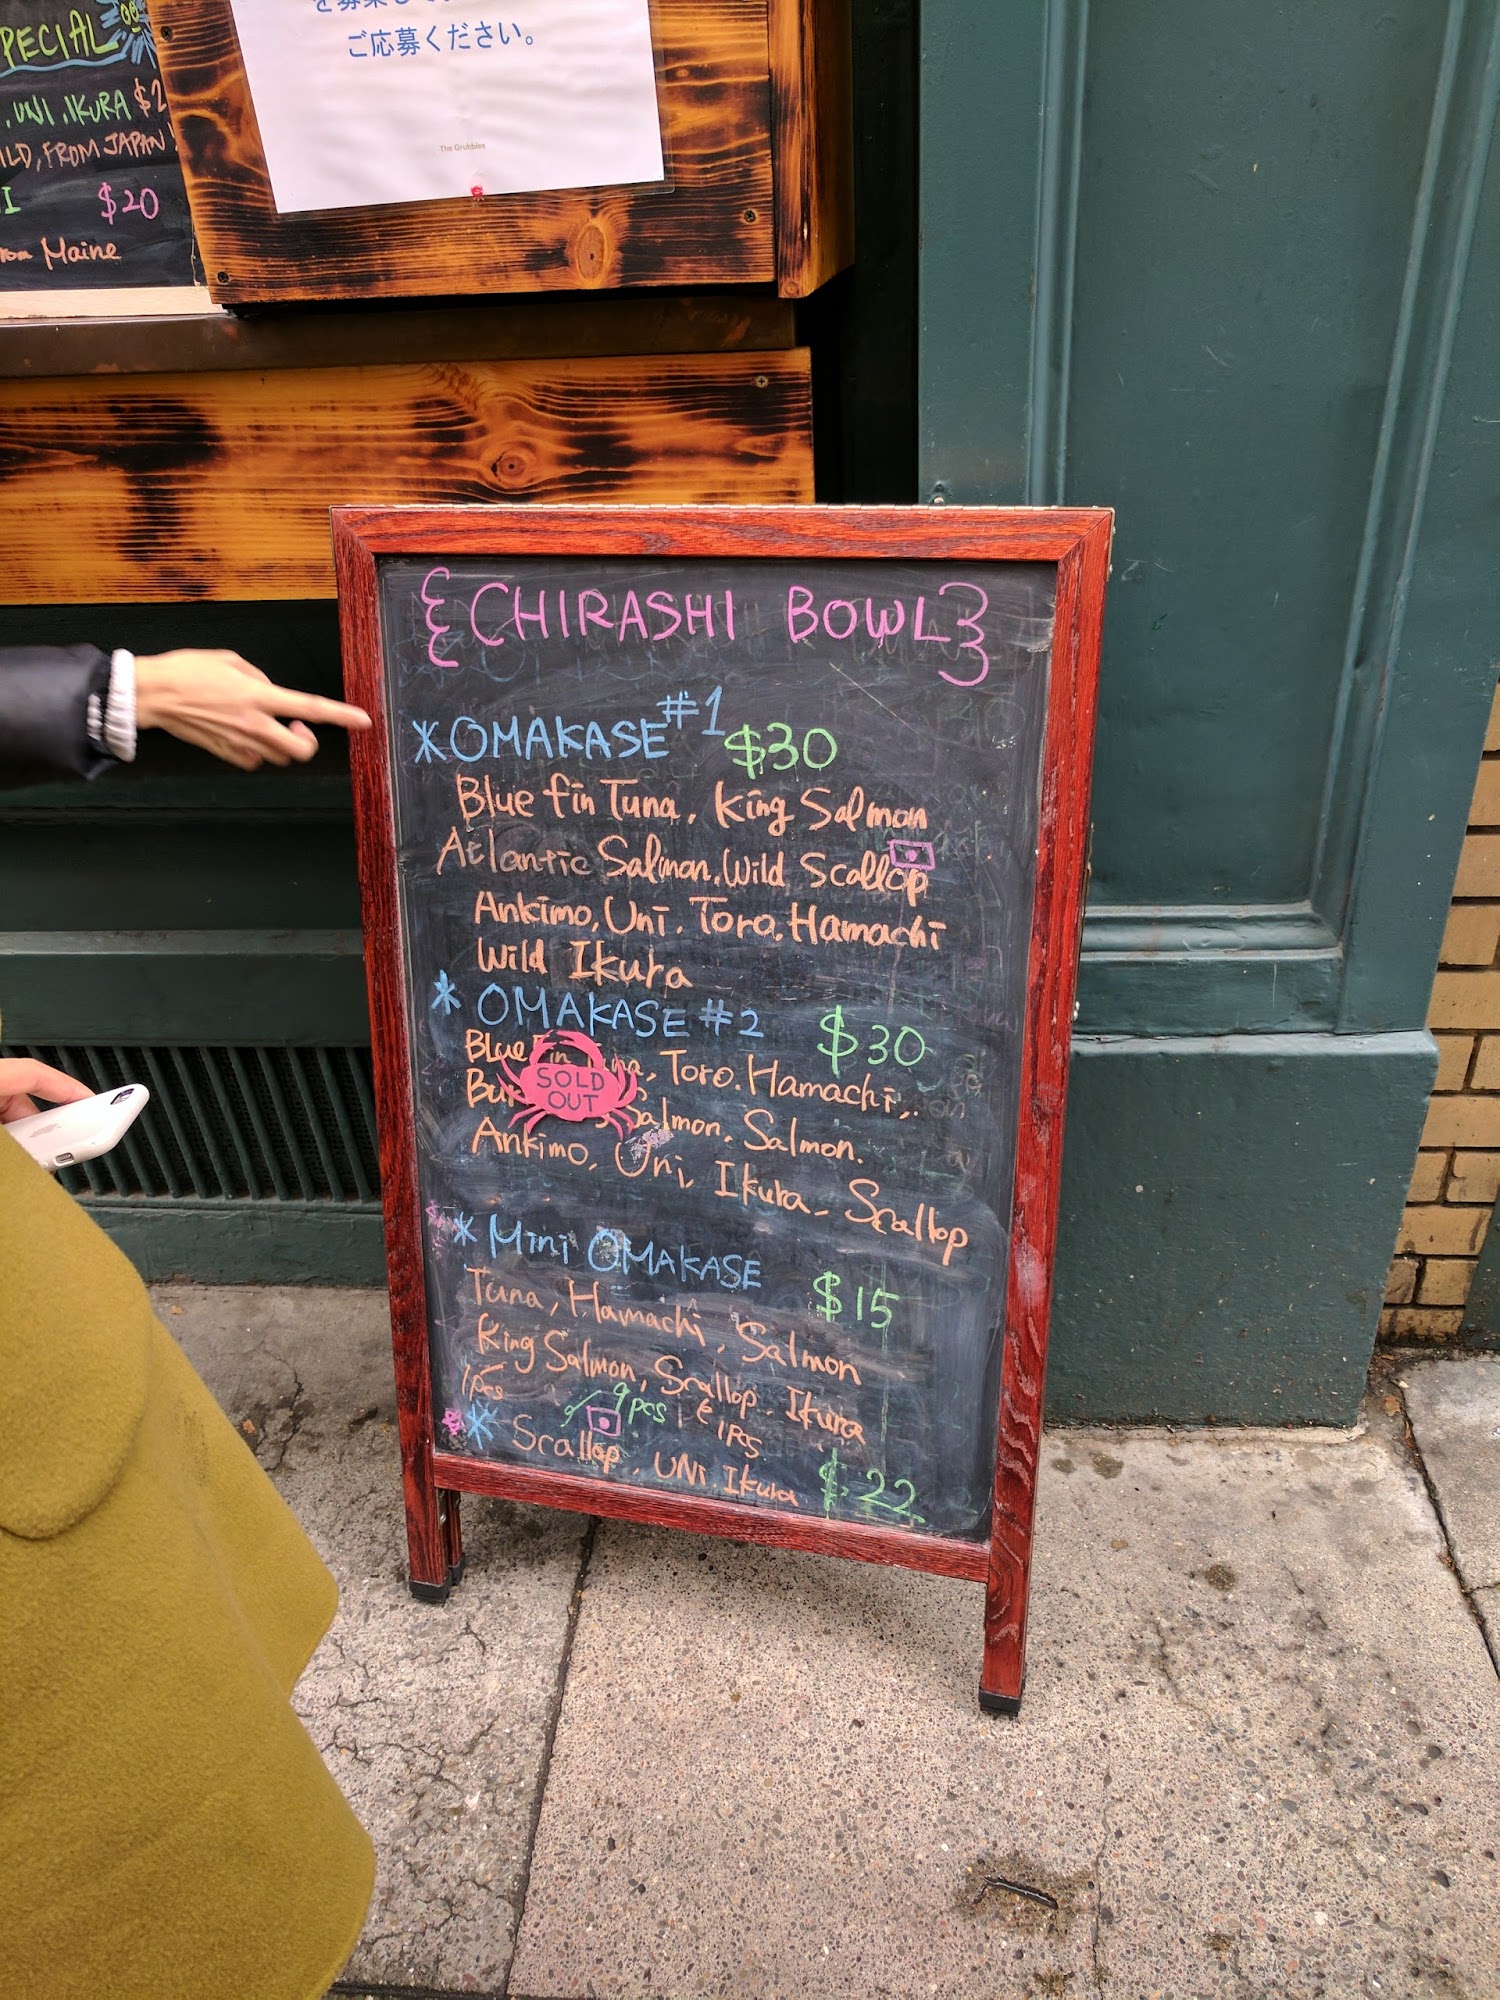 PECIAL
, UNI, IKURA $2
ILD, FROM JAPAN!
I $20
rom Maine
ご応募ください。
The Grubbies
CHIRASHI BOWL
*OMAKASE #1 $30
Blue fin Tuna, King Salmon
Atlantic Salmon, Wild Scallop
Ankimo, Uni, Toro, Hamachi
Wild Ikura
* OMAKASE #2 $30
Blue Fin una, Toro. Hamachi,
Salmon, Salmon.
SOLD
OUT
Ankimo, Uni, Ikura, Scallop
* Mini OMAKASE $15
Tuna, Hamachi, Salmon
King Salmon, Scallop. Ikura
1pcs 9pcs 1pcs
* Scallop, UNI, Ikura $22